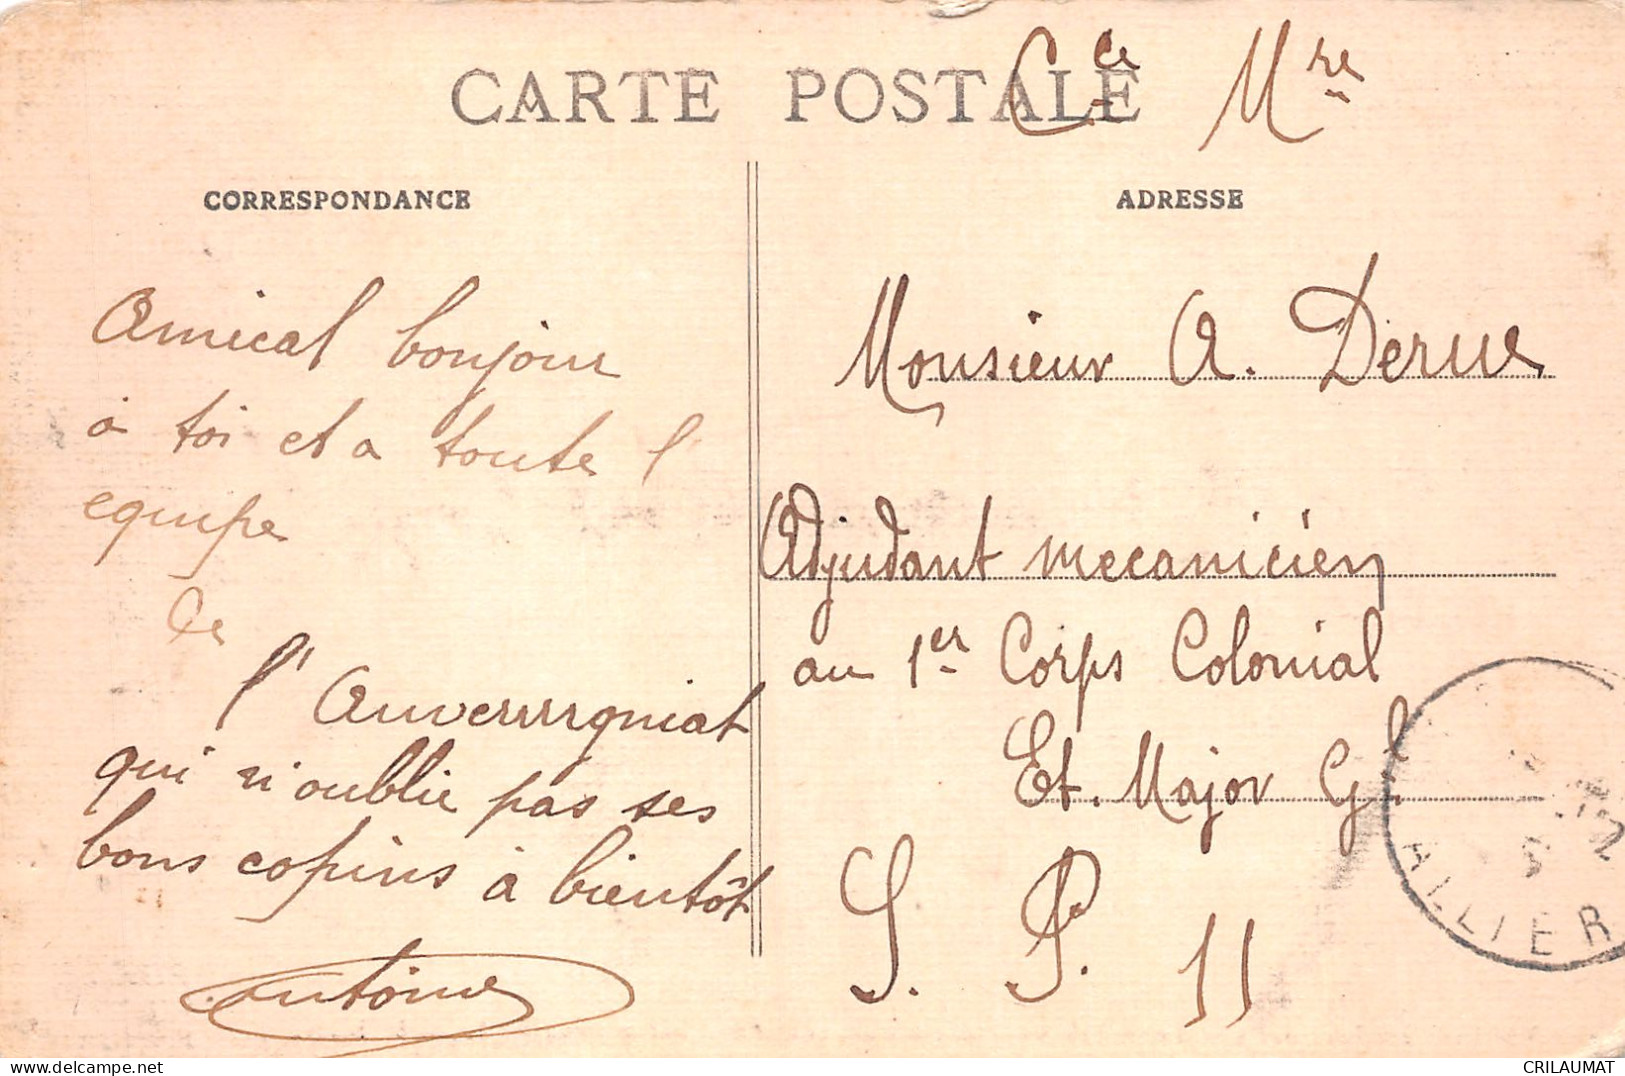 CARTE POSTALE
Cce Mre
CORRESPONDANCE
Amical bonjour
à toi et a toute l'
equipe
De
l'Auverrrrgniat
qui n'oublie pas ses
bons copins à bientôt
Antoine
ADRESSE
Monsieur A. Derue
Adjudant mecanicien
au 1er Corps Colonial
Et. Major Gl.
S. P. 11
ALLIER
CRILAUMAT